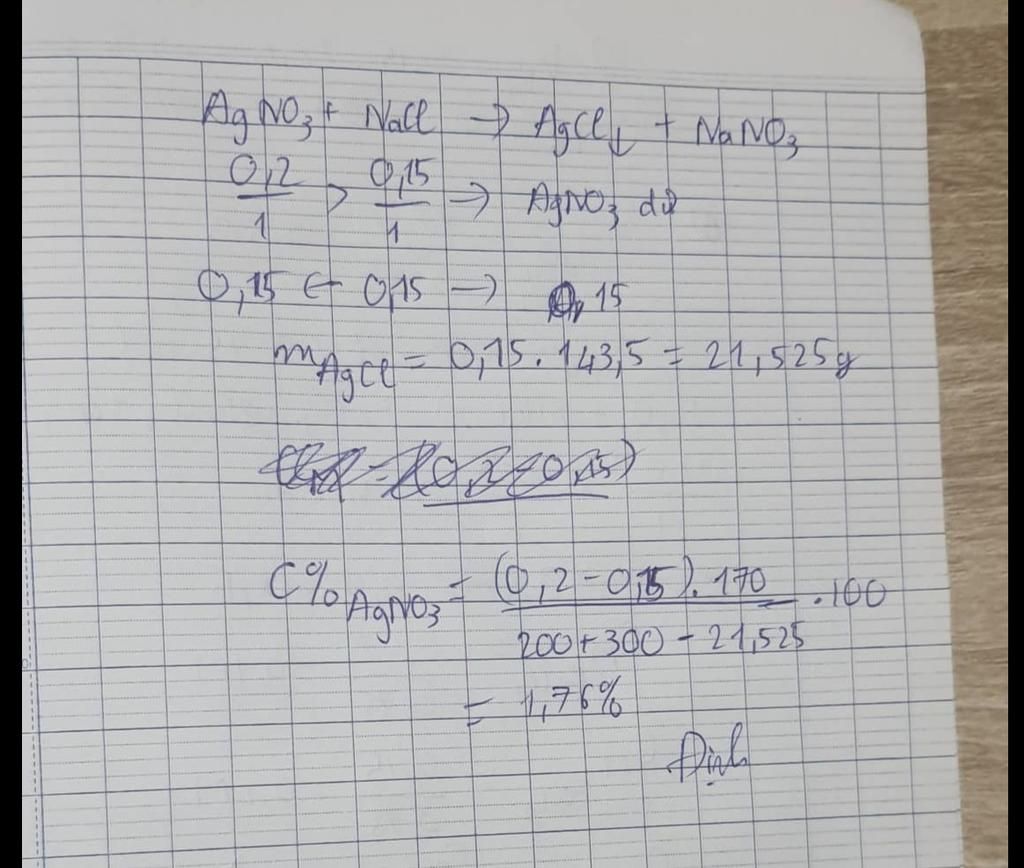 AgNO₃ + NaCl → AgCl↓ + NaNO₃
0,2/1 > 0,15/1 → AgNO₃ dư
0,15 ← 0,15 → 0,15
m AgCl = 0,15 . 143,5 = 21,525g
C% AgNO₃ = (0,2 - 0,15) . 170 / 200 + 300 - 21,525 . 100
= 1,76%
Định